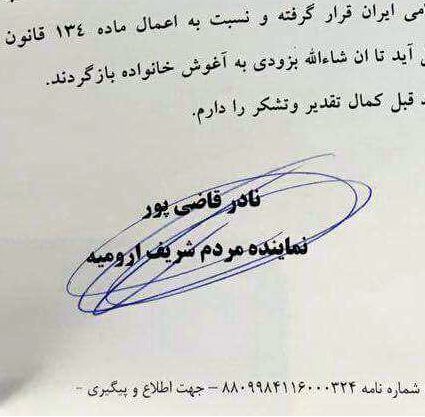 می ایران قرار گرفته و نسبت به اعمال ماده ١٣٤ قانون
آید تا ان شاءالله بزودی به آغوش خانواده بازگردند.
قبل کمال تقدیر وتشکر را دارم.
نادر قاضی پور
نماینده مردم شریف ارومیه
شماره نامه ۸۸۰۹۹۸۴۱۱۶۰۰۰۳۲۴ – جهت اطلاع و پیگیری -